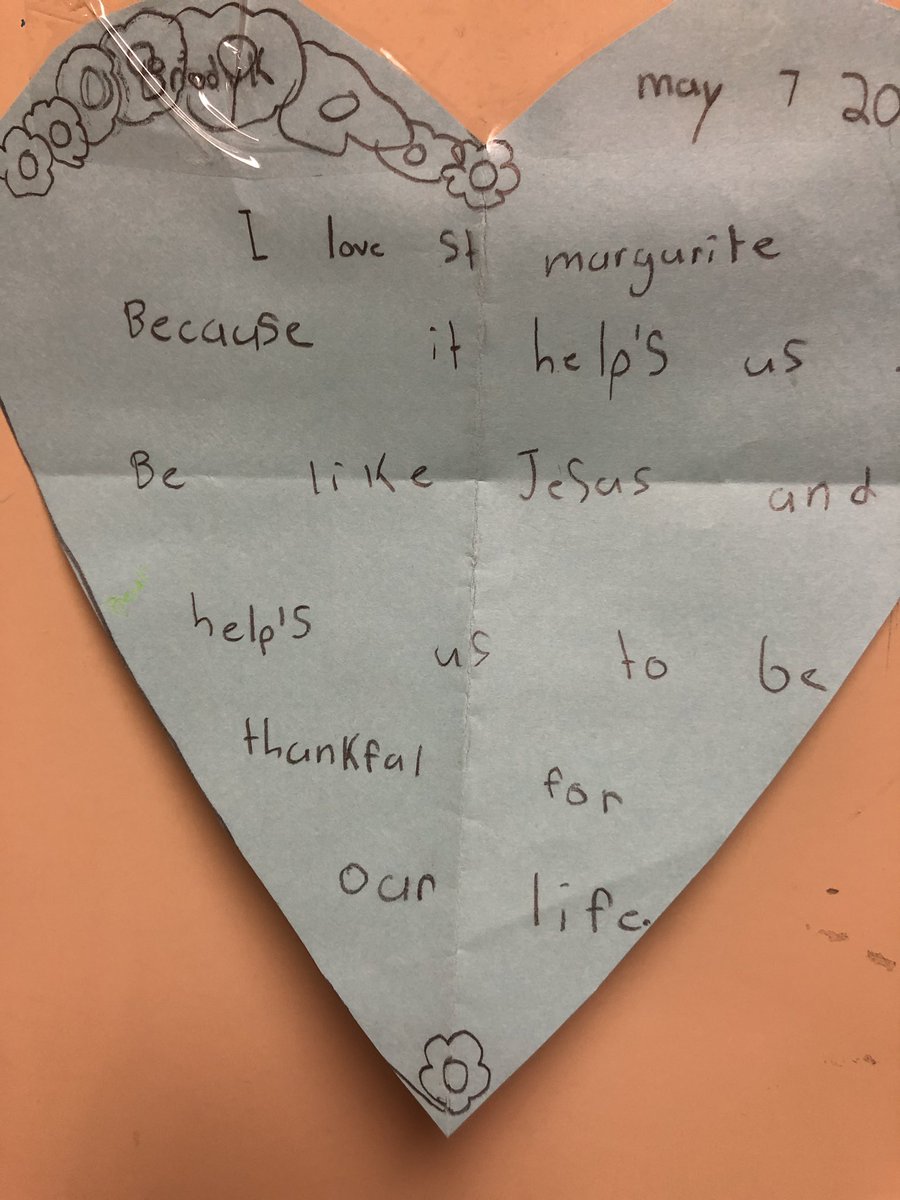 Brody K
may 7 20
I love st murgurite
Because it help's us
Be like Jesus and
help's us to be
thankful for
our life.